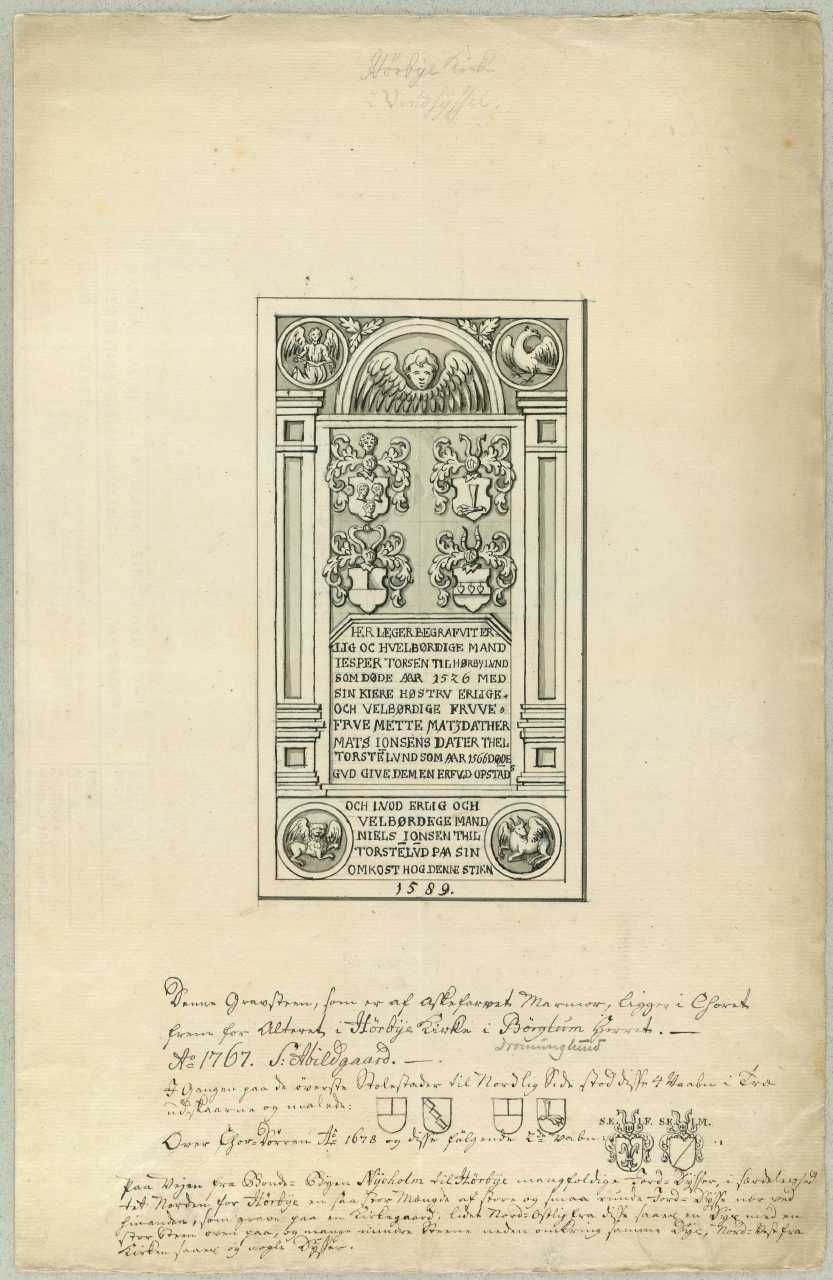 Hörbÿe Kirke
i Vendsÿssel.
HER LÆGER BEGRAFVIT ER-
LIG OC HVELBØRDIGE MAND
IESPER TORSEN TIL HØRBYLVND
SOM DØDE AAR 1526 MED
SIN KIERE HØSTRV ERLIGE
OCH VELBØRDIGE FRVVE
FRVE METTE MATZDATHER
MATS IONSENS DATER THEL
TORSTELVND SOM AAR 1566 DØDE
GVD GIVE DEM EN ERFVD OPSTAD S
OCH LVOD ERLIG OCH
VELBØRDEGE MAND
NIELS IONSEN THIL
TORSTELVD PAA SIN
OMKOST HOG DENNE STIEN
1589.
Denne Gravsteen, som er af Askefarvet Marmor, ligger i Choret
frem for Alteret i Hörbÿe Kirke i Börglum Herret. —
Dronninglund
Ao 1767. S: Abildgaard. —
I Gangen paa de överste Stolestader til Nordlig Side stod disse 4 Vaaben i Træ
udskaarne og malede:
Over Chor-Dörren Ao 1678 og disse fölgende 2de Vaben:
S.E. F. S.E. M.
Paa Vejen fra Bonde-Bÿen Nÿeholm til Hörbÿe mangfoldige Jord-Dÿsser, i særdeleshed
tet Norden for Hörbÿe en saa stor Mængde af store og smaa runde Jord-Dÿsser nær ved
hinanden, som grave paa en Kirkegaard; liden Nord-Ostlig fra disse saaes en Dÿs med en
stor Steen oven paa, og mange mindre Steene neden omkring samme Dÿs, Nord-Vest fra
Kirken saaes og nogle Dÿsser.